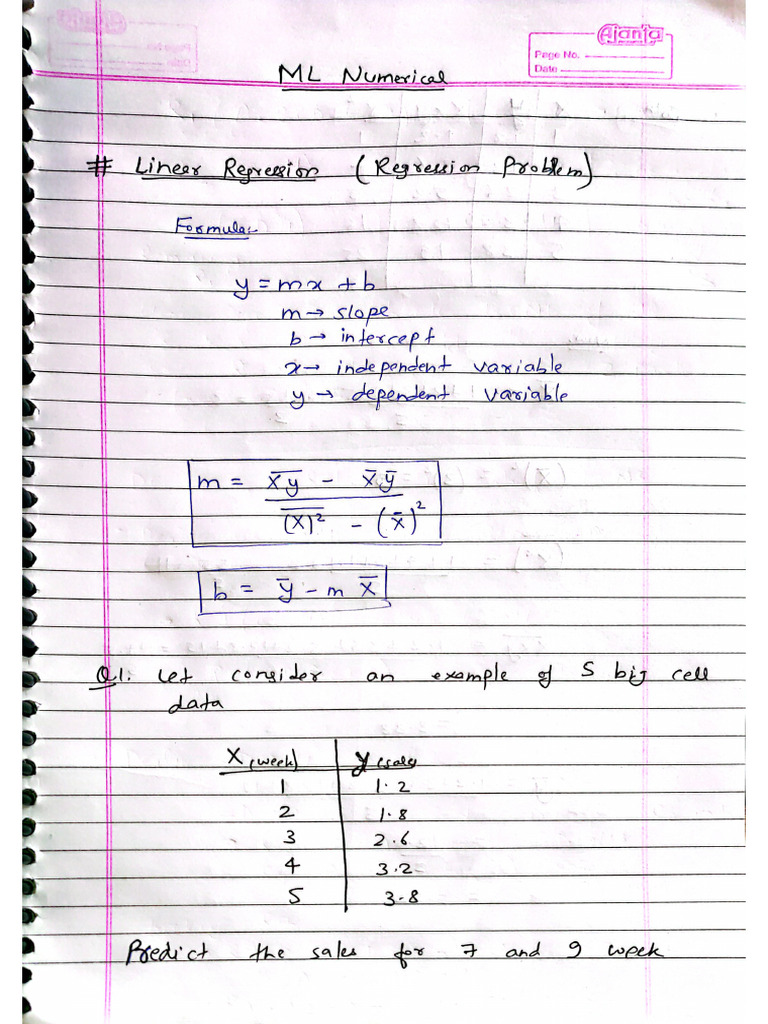 Ajanta
Page No.
Date
ML Numerical
# Linear Regression (Regression Problem)
Formula:-
y = mx + b
m → slope
b → intercept
x → independent variable
y → dependent variable
m = x̅y̅ - x̄ ȳ
(x)̅² - (x̄)²
b = ȳ - m x̄
Q1. Let consider an example of 5 big cell
data
X (week) y (sales
1 1.2
2 1.8
3 2.6
4 3.2
5 3.8
Predict the sales for 7 and 9 week